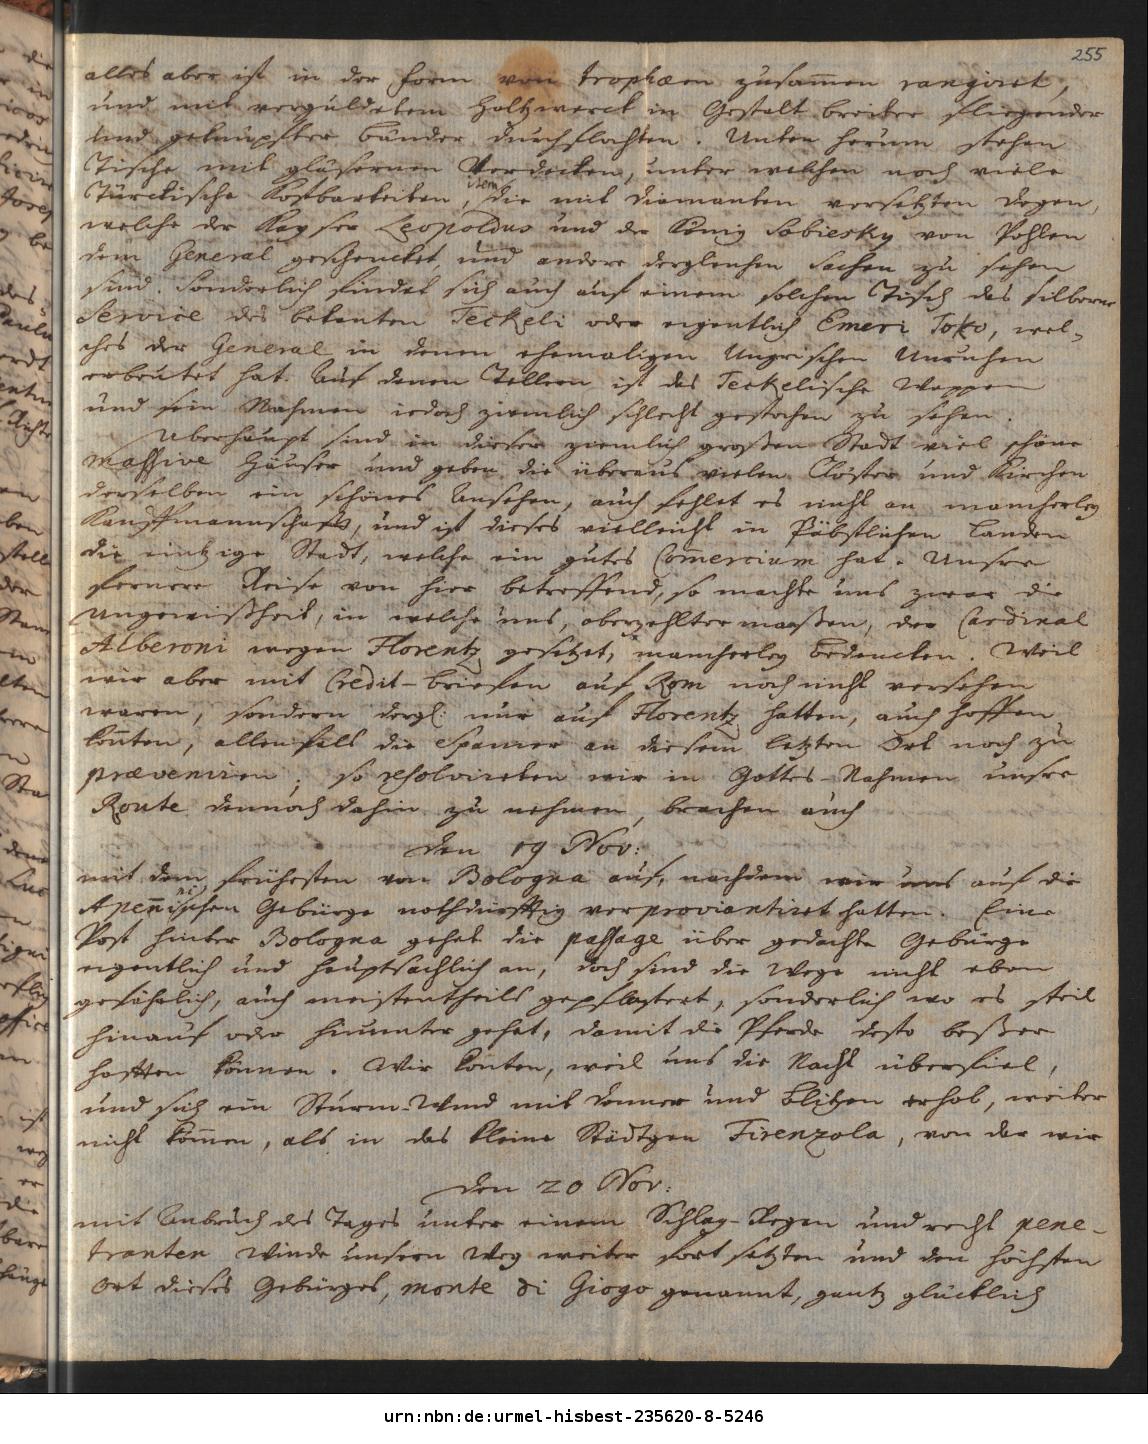 255
alles aber ist in der Form von trophæen zusam̄en rangiret,
und mit vergüldetem Holtzwerck in Gestalt breiter fliegender
und geknüpfter Bänder durchflochten. Unten herum stehen
Tische mit gläsernen Verdecken, unter welchen noch viele
Türckische Kostbarkeiten, item die mit diamanten versetzten Degen,
welche der Kayser Leopoldus und der König Sobiesky von Pohlen
dem General geschencket, und andere dergleichen Sachen zu sehen
sind. Sonderlich findet sich auch auf einem solchen Tisch das silberne
Service des bekanten Teckeli oder eigentlich Emeri Toko, wel-
ches der General in denen ehemaligen Ungrischen Unruhen
erbeutet hat. Auf denen Tellern ist das Teckelische Wappen
und sein Nahmen iedoch ziemlich schlecht gestochen zu sehen.
Uberhaupt sind in dieser ziemlich großen Stadt viel schöne
massive Häuser und geben die überaus vielen Clöster und Kirchen
derselben ein schönes Ansehen, auch fehlet es nicht an mancherley
Kauffmannschafft, und ist dieses vielleicht in Päbstlichen Landen
die eintzige Stadt, welche ein gutes Com̄ercium hat. Unsere
fernere Reise von hier betreffend, so machte uns zwar die
Ungewißheit, in welche uns, oberzehlter maaßen, der Cardinal
Alberoni wegen Florentz gesetzt, mancherley Bedencken. Weil
wir aber mit Credit-briefen auf Rom noch nicht versehen
waren, sondern dergl: nur auf Florentz hatten, auch hoffen
kon̄ten, allenfals die Spanier an diesem letzten Ort noch zu
præveniren; so resolvireten wir in Gottes-Nahmen unsre
Route dennoch dahin zu nehmen, brachen auch
den 19 Nov:
mit dem frühesten von Bologna auf, nachdem wir uns auf die
Apen̄inischen Gebürge nothdürfftig verproviantiret hatten. Eine
Post hinter Bologna gehet die passage über gedachte Gebürge
eigentlich und hauptsächlich an, doch sind die Wege nicht eben
gefährlich, auch meistentheils gepflastert, sonderlich wo es steil
hinauf oder hinunter gehet, damit die Pferde desto beßer
hafften können. Wir konten, weil uns die Nacht überfiel,
und sich ein Sturm-Wind mit Donner und Blitzen erhob, weiter
nicht kom̄en, als in das kleine Städtgen Firenzola, von da wir
den 20 Nov:
mit Anbruch des Tages unter einem Schlag-Regen und recht pene-
tranten Winde unsern Weg weiter fort setzten und den höchsten
Ort dieses Gebürges, monte di Giogo genannt, gantz glücklich
urn:nbn:de:urmel-hisbest-235620-8-5246